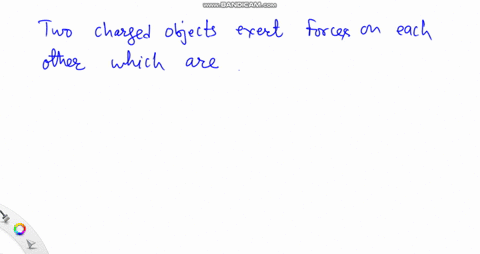 WWW.BANDICAM.COM
Two charged objects exert forces on each
other which are